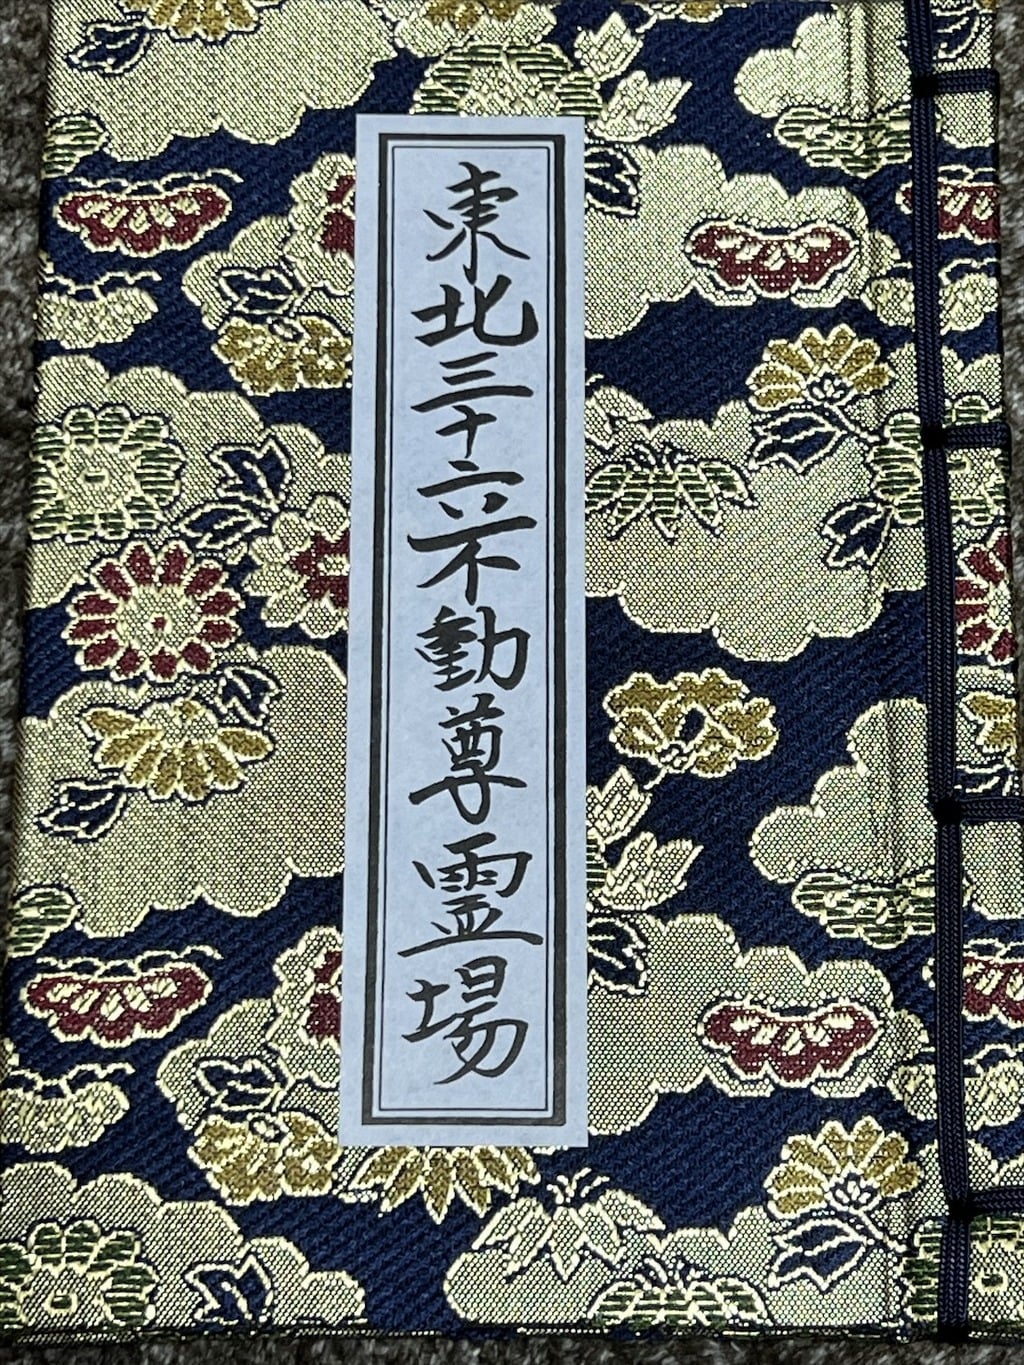 東北三十六不動尊霊場